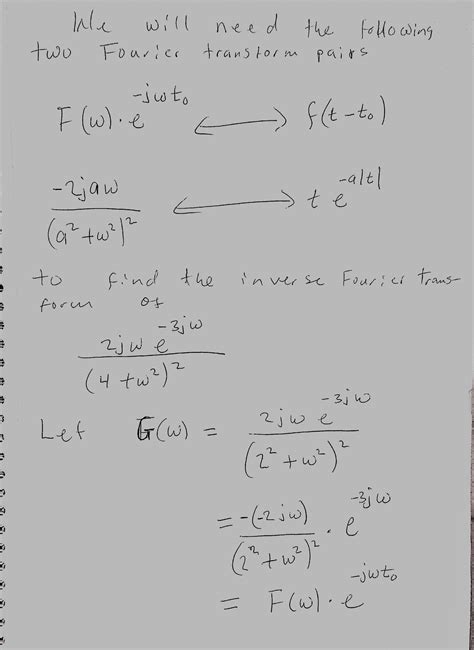 We will need the following
two Fourier transform pairs
F(ω)·e^{-jωt₀} ⟷ f(t-t₀)
\frac{-2jaω}{(a²+ω²)²} ⟷ t e^{-a|t|}
to find the inverse Fourier trans-
form of
\frac{2jω e^{-3jω}}{(4+ω²)²}
Let G(ω) = \frac{2jω e^{-3jω}}{(2²+ω²)²}
= \frac{-(-2jω)}{(2²+ω²)²} · e^{-3jω}
= F(ω)·e^{-jωt₀}